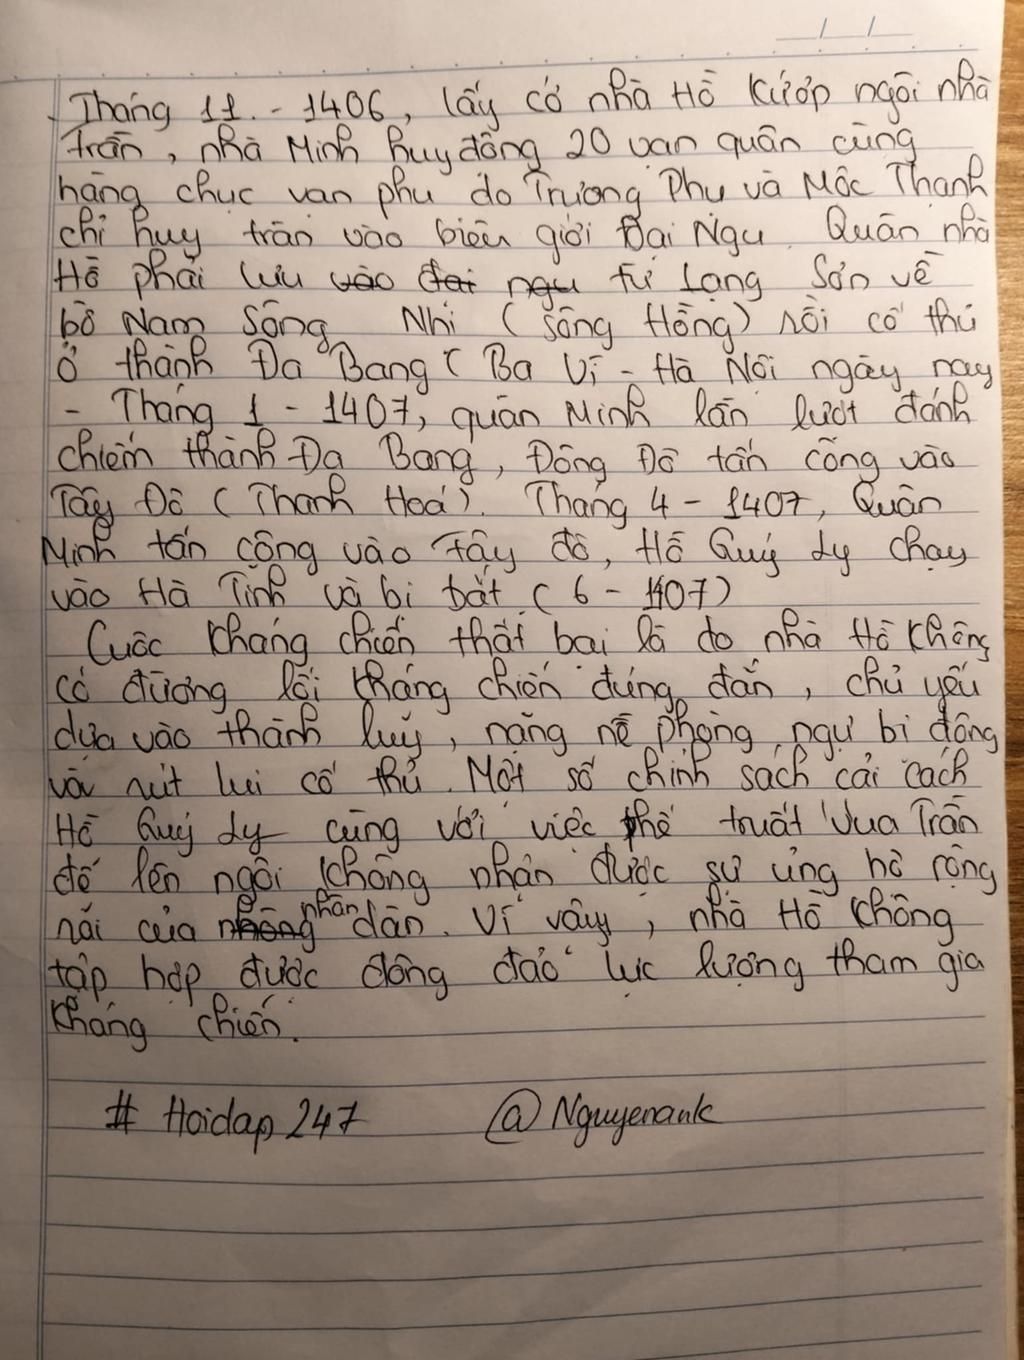 Tháng 11 - 1406, lấy cớ nhà Hồ Kướp ngôi nhà
trần, nhà Minh huy đông 20 vạn quân cùng
hàng chục vạn phu do Trương Phụ và Mộc Thạnh
chỉ huy tràn vào biên giới Đại Ngu. Quân nhà
Hồ phải lưu vào đại ngu từ Lạng Sơn về
bờ Nam Sông Nhị (sông Hồng) rồi cố thủ
ở thành Đa Bang (Ba Vì - Hà Nội ngày nay
- Tháng 1 - 1407, quân Minh lần lượt đánh
chiếm thành Đa Bang, Đông Đô tấn công vào
Tây Đô (Thanh Hoá). Tháng 4 - 1407, Quân
Minh tấn công vào Tây đô, Hồ Quý Ly chạy
vào Hà Tĩnh và bị bắt (6 - 1407)
Cuộc kháng chiến thất bại là do nhà Hồ không
có đường lối kháng chiến đúng đắn, chủ yếu
dựa vào thành luỹ, nặng nề phòng ngự bị động
và rút lui cố thủ. Một số chính sách cải cách
Hồ Quý Ly cùng với việc phế truất Vua Trần
để lên ngôi không nhận được sự ủng hộ rộng
rãi của nhông nhân dân. Vì vậy, nhà Hồ không
tập hợp được đông đảo lực lượng tham gia
kháng chiến.
# Hoidap 247 @Nguyenank